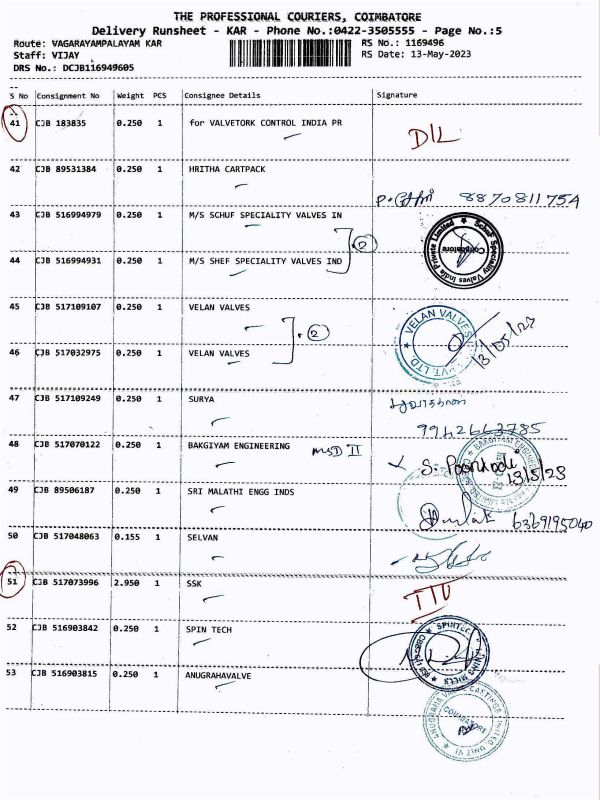 THE PROFESSIONAL COURIERS, COIMBATORE
Delivery Runsheet - KAR - Phone No.:0422-3505555 - Page No.:5
Route: VAGARAYAMPALAYAM KAR RS No.: 1169496
Staff: VIJAY RS Date: 13-May-2023
DRS No.: DCJB116949605
S No Consignment No Weight PCS Consignee Details Signature
41 CJB 183835 0.250 1 for VALVETORK CONTROL INDIA PR D/L
42 CJB 89531384 0.250 1 HRITHA CARTPACK
8870811754
43 CJB 516994979 0.250 1 M/S SCHUF SPECIALITY VALVES IN
Schuf Speciality Valves India Private Limited Coimbatore
2
44 CJB 516994931 0.250 1 M/S SHEF SPECIALITY VALVES IND
45 CJB 517109107 0.250 1 VELAN VALVES
VELAN VALVES PVT. LTD.
2 13/05/23
46 CJB 517032975 0.250 1 VELAN VALVES
47 CJB 517109249 0.250 1 SURYA
9942643785
48 CJB 517070122 0.250 1 BAKGIYAM ENGINEERING MSD II
S. Poonkodi
13/5/23
49 CJB 89506187 0.250 1 SRI MALATHI ENGG INDS
6369195040
50 CJB 517048063 0.155 1 SELVAN
51 CJB 517073996 2.950 1 SSK
52 CJB 516903842 0.250 1 SPIN TECH
53 CJB 516903815 0.250 1 ANUGRAHAVALVE
COIMBATORE